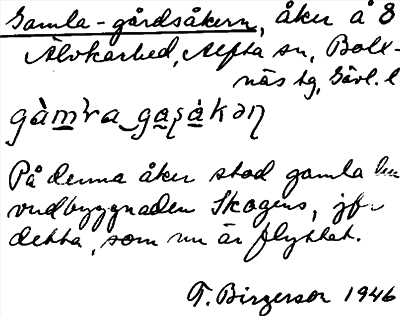 Gamla-gårdsåkern, åker å 8
Älvkarhed, Alfta sn, Boll-
näs tg, Gävl. l
På denna åker stod gamla
vudbyggnaden Skogens, jfr
detta, som nu är flyttat.
T. Birgerson 1946